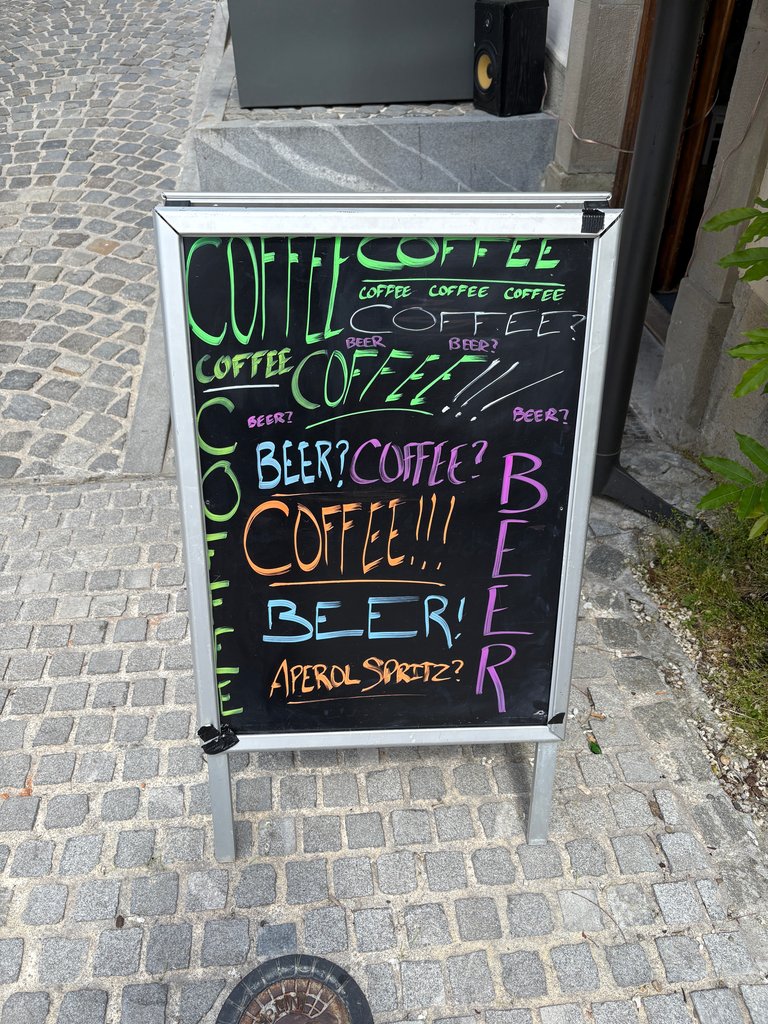 COFFEE COFFEE
COFFEE COFFEE COFFEE
COFFEE?
BEER BEER?
COFFEE COFFEE!!!
BEER? BEER?
COFFEE
BEER? COFFEE?
BEER
COFFEE!!!
BEER!
APEROL SPRITZ?